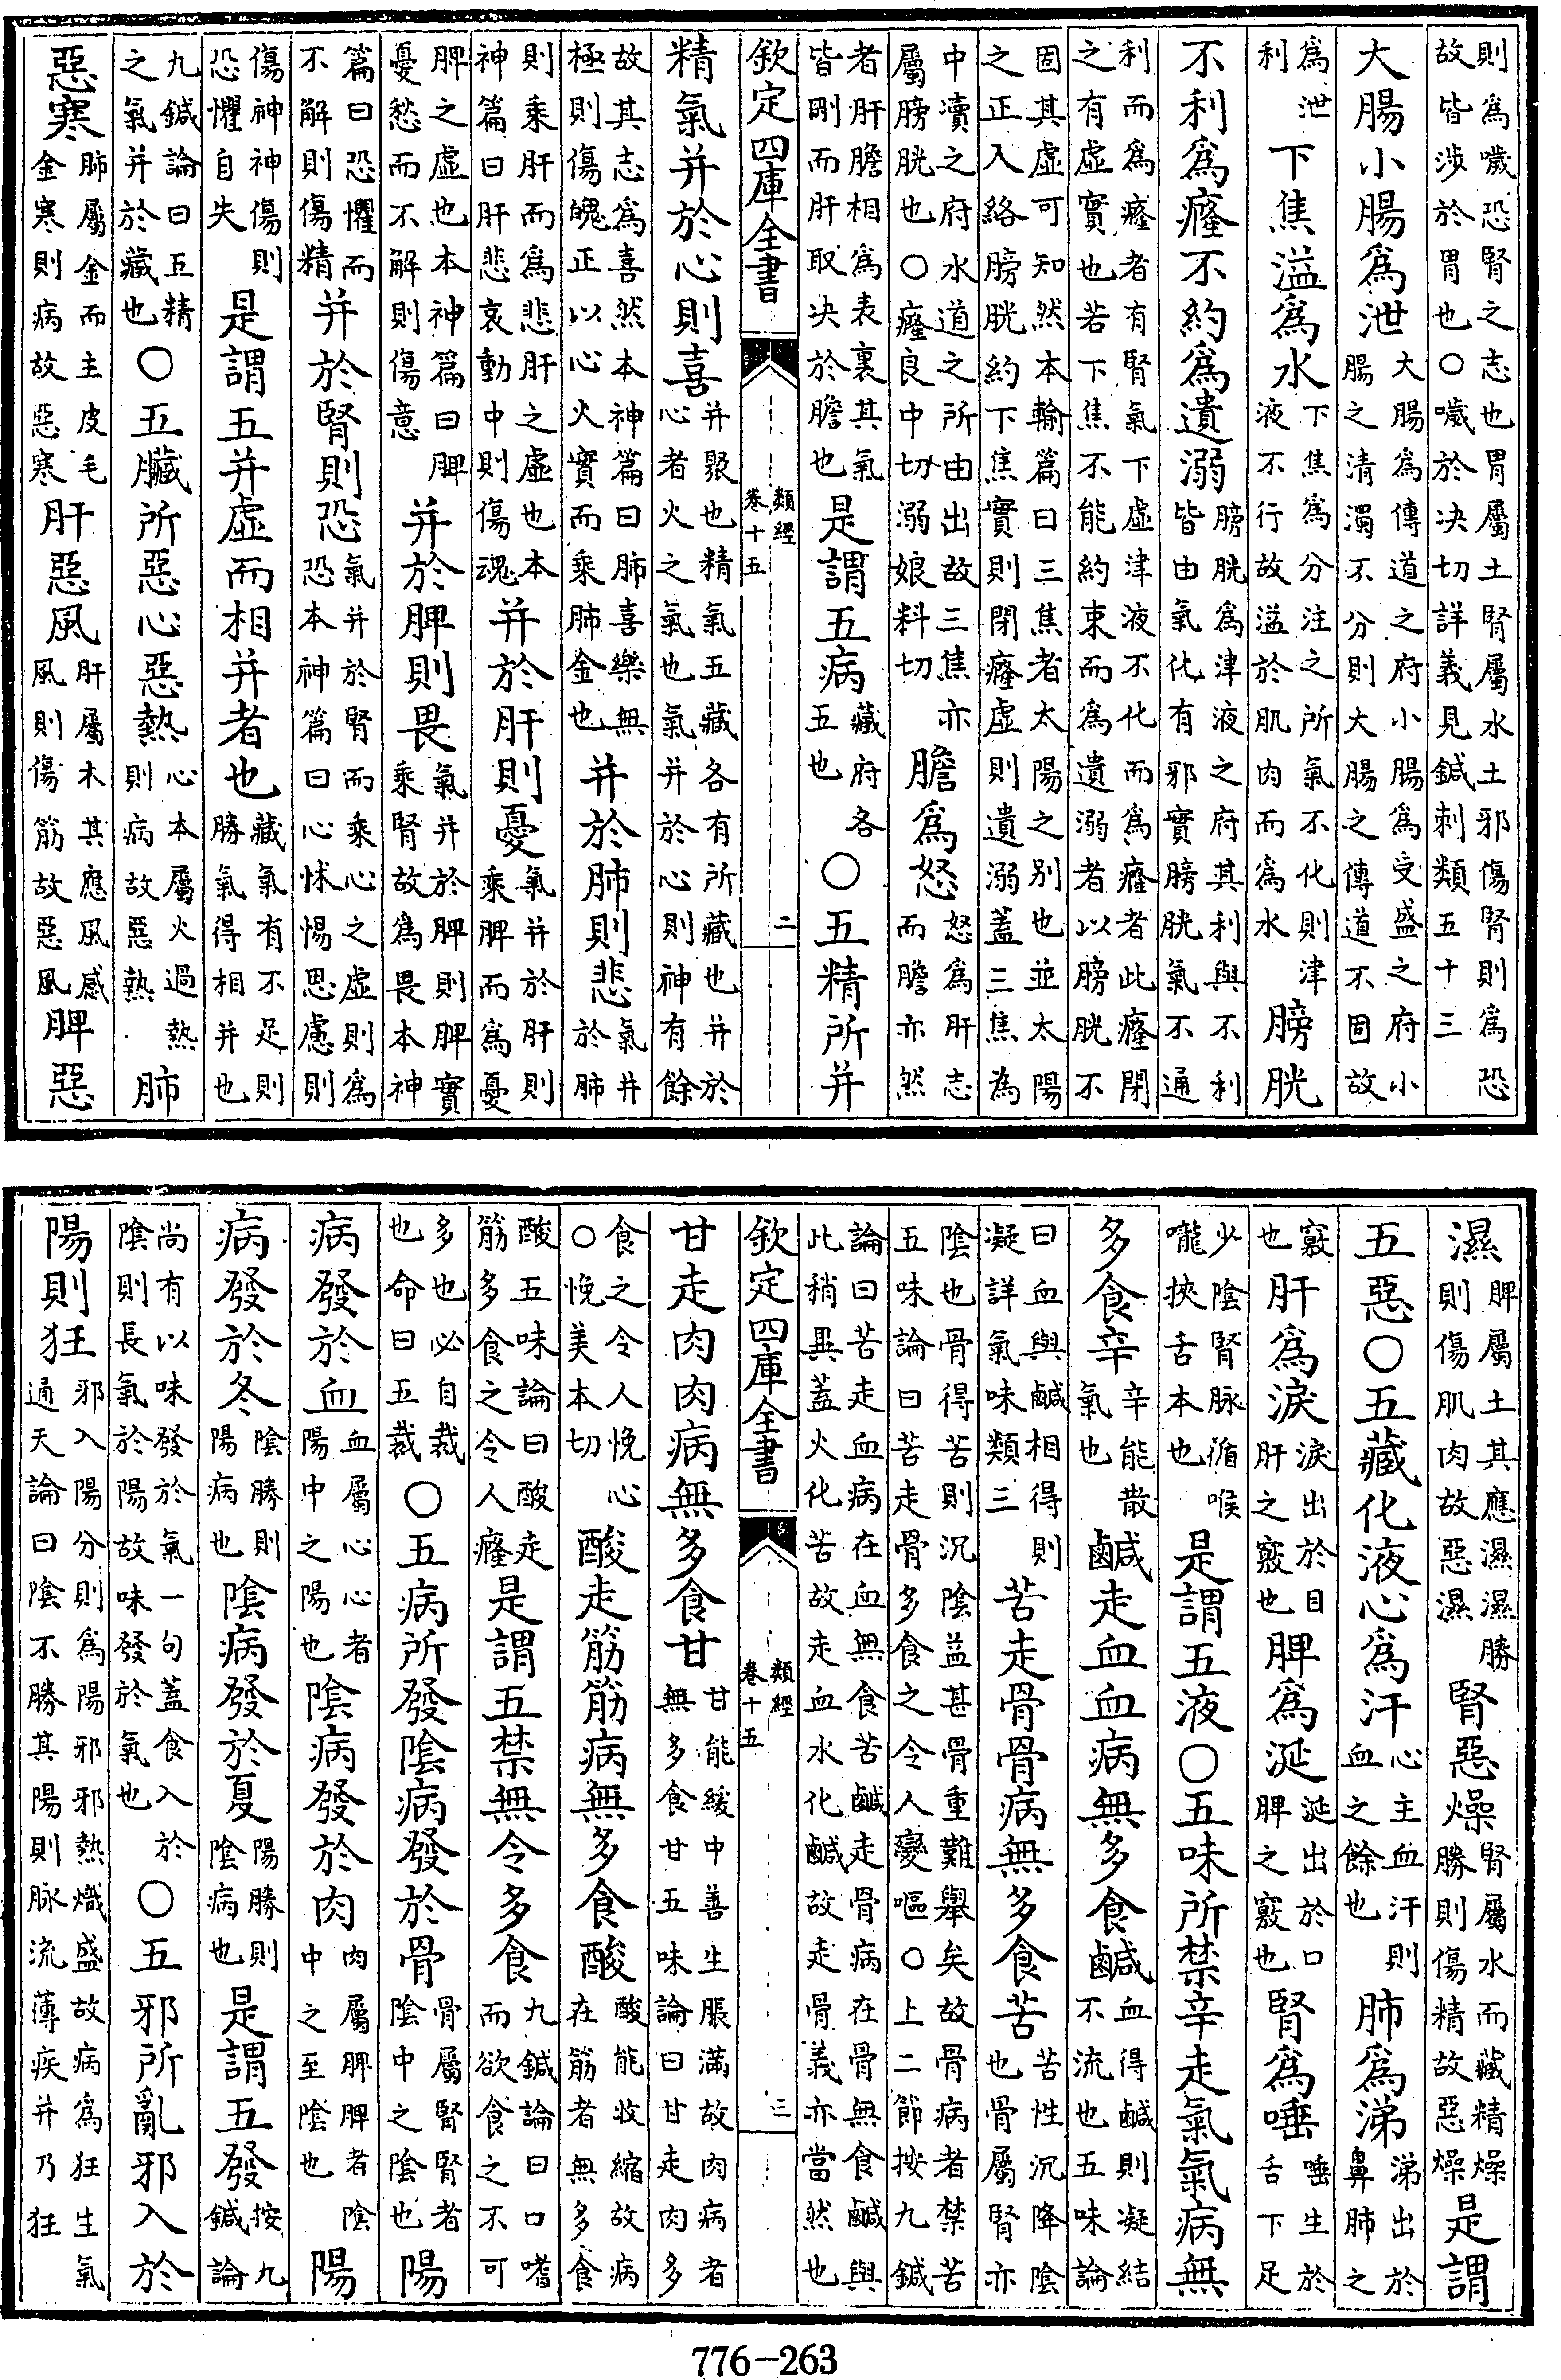 則爲噦恐腎之志也胃屬土腎屬水土邪傷腎則爲恐
故皆涉於胃也○噦於决切詳義見鍼刺類五十三
大腸小腸爲泄大腸爲傳道之府小腸爲受盛之府小腸之清濁不分則大腸之傳道不固故
爲泄利下焦溢爲水下焦爲分注之所氣不化則津液不行故溢於肌肉而爲水膀胱
不利爲癃不約爲遺溺膀胱爲津液之府其利與不利皆由氣化有邪實膀胱氣不通
利而爲癃者有腎氣下虛津液不化而爲癃者此癃閉
之有虛實也若下焦不能約束而爲遺溺者以膀胱不
固其虛可知然本輸篇曰三焦者太陽之别也並太陽
之正入絡膀胱約下焦實則閉癃虛則遺溺蓋三焦為
中瀆之府水道之所由出故三焦亦屬膀胱也○癃良中切溺娘料切膽爲怒怒爲肝志而膽亦然
者肝膽相爲表裏其氣皆剛而肝取决於膽也是謂五病藏府各五也○五精所并
欽定四庫全書 類經 卷十五 二
精氣并於心則喜并聚也精氣五藏各有所藏也并於心者火之氣也氣并於心則神有餘
故其志爲喜然本神篇曰肺喜樂無極則傷魄正以心火實而乘肺金也并於肺則悲氣并於肺
則乘肝而爲悲肝之虛也本神篇曰肝悲哀動中則傷魂并於肝則憂氣并於肝則乘脾而爲憂
脾之虛也本神篇曰脾憂愁而不解則傷意并於脾則畏氣并於脾脾則脾實乘腎故爲畏本神
篇曰恐懼而不解則傷精并於腎則恐氣并於腎而乘心之虛則爲恐本神篇曰心怵惕思慮則
傷神神傷則恐懼自失是謂五并虛而相并者也藏氣有不足則勝氣得相并也
九鍼論曰五精之氣并於藏也○五臟所惡心惡熱心本屬火過熱則病故惡熱肺
惡寒肺屬金而主皮毛金寒則病故惡寒肝惡風肝屬木其應風感風則傷筋故惡風脾惡
濕脾屬土其應濕濕勝則傷肌肉故惡濕腎惡燥腎屬水而藏精燥勝則傷精故惡燥是謂
五惡○五藏化液心爲汗心主血汗則血之餘也肺爲涕涕出於鼻肺之
竅也肝爲淚淚出於目肝之竅也脾爲涎涎出於口脾之竅也腎爲唾唾生於舌下足
少陰腎脉循喉嚨挾舌本也是謂五液○五味所禁辛走氣氣病無
多食辛辛能散氣也鹹走血血病無多食鹹血得鹹則凝結不流也五味論
曰血與鹹相得則凝詳氣味類三苦走骨骨病無多食苦苦性沉降陰也骨屬腎亦
陰也骨得苦則沉陰益甚骨重難舉矣故骨病者禁苦
五味論曰苦走骨多食之令人變嘔○上二節按九鍼
論曰苦走血病在血無食苦鹹走骨病在骨無食鹹與
此稍異蓋火化苦故走血水化鹹故走骨義亦當然也
欽定四庫全書 類經 卷十五 三
甘走肉肉病無多食甘甘能緩中善生脹滿故肉病者無多食甘五味論曰甘走肉多
食之令人悗心○悗美本切酸走筋筋病無多食酸酸能收縮故病在筋者無多食
酸五味論曰酸走筋多食之令人癃是謂五禁無令多食九鍼論曰口嗜而欲食之不可
多也必自裁也命曰五裁○五病所發陰病發於骨骨屬腎腎者陰中之陰也陽
病發於血血屬心心者陽中之陽也陰病發於肉肉屬脾脾者陰中之至陰也陽
病發於冬陰勝則陽病也陰病發於夏陽勝則陰病也是謂五發按九鍼論
尚有以味發於氣一句蓋食入於陰則長氣於陽故味發於氣也○五邪所亂邪入於
陽則狂邪入陽分則爲陽邪邪熱熾盛故病爲狂生氣通天論曰陰不勝其陽則脉流薄疾并乃狂
776-263